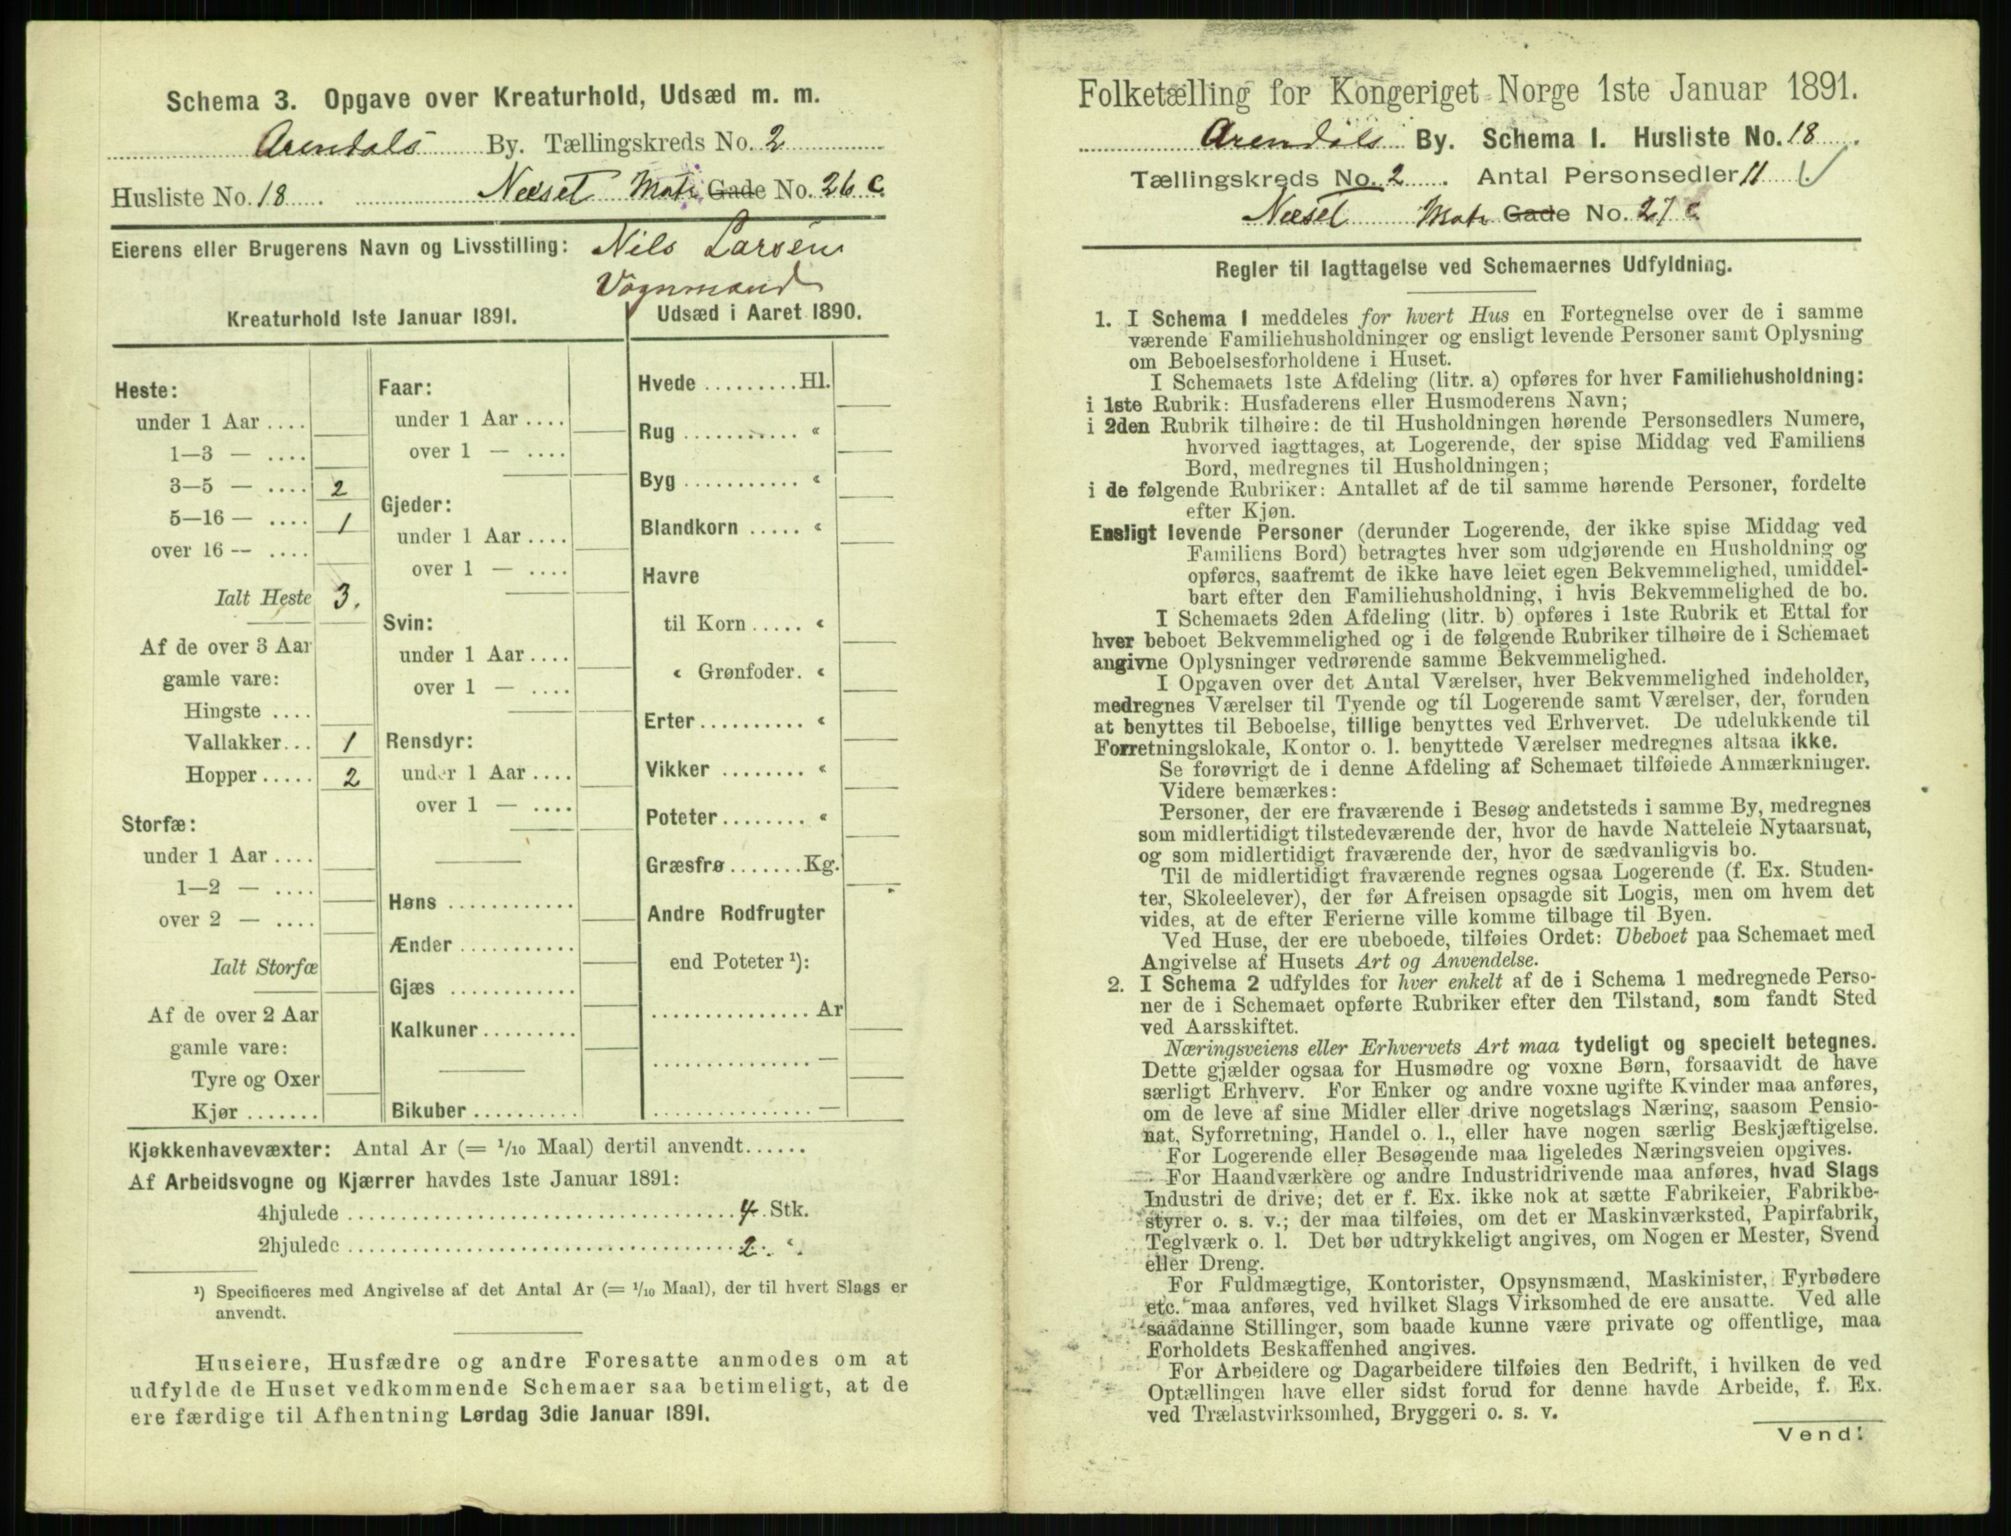 Schema 3. Opgave over Kreaturhold, Udsæd m. m.
Arendals By. Tællingskreds No. 2
Husliste No. 18 Næset Matr Gade No. 26 c.
Eierens eller Brugerens Navn og Livsstilling: Nils Larsen
Vognmand
Kreaturhold 1ste Januar 1891.
Heste:
under 1 Aar ....
1—3 — ....
3—5 — .... 2
5—16 — .... 1
over 16 — ....
Ialt Heste 3.
Af de over 3 Aar
gamle vare:
Hingste ....
Vallakker... 1
Hopper..... 2
Storfæ:
under 1 Aar ....
1—2 — ....
over 2 — ....
Ialt Storfæ
Af de over 2 Aar
gamle vare:
Tyre og Oxer
Kjør.......
Faar:
under 1 Aar ....
over 1 — ....
Gjeder:
under 1 Aar ....
over 1 — ....
Svin:
under 1 Aar ....
over 1 — ....
Rensdyr:
under 1 Aar ....
over 1 — ....
Høns ............
Ænder ...........
Gjæs ............
Kalkuner.........
Bikuber ..........
Udsæd i Aaret 1890.
Hvede .........Hl.
Rug ........... "
Byg ........... "
Blandkorn ..... "
Havre
til Korn ..... "
" Grønfoder. "
Erter.......... "
Vikker ........ "
Poteter........ "
Græsfrø .......Kg.
Andre Rodfrugter
end Poteter ¹):
............... Ar
............... —
............... —
Kjøkkenhavevæxter: Antal Ar (= 1/10 Maal) dertil anvendt......
Af Arbeidsvogne og Kjærrer havdes 1ste Januar 1891:
4hjulede .................................... 4 Stk.
2hjulede .................................... 2. "
¹) Specificeres med Angivelse af det Antal Ar (= 1/10 Maal), der til hvert Slags er
anvendt.
Huseiere, Husfædre og andre Foresatte anmodes om at
udfylde de Huset vedkommende Schemaer saa betimeligt, at de
ere færdige til Afhentning Lørdag 3die Januar 1891.
Folketælling for Kongeriget Norge 1ste Januar 1891.
Arendals By. Schema I. Husliste No. 18
Tællingskreds No. 2 . Antal Personsedler 11 .
Næset Matr Gade No. 27 c
Regler til Iagttagelse ved Schemaernes Udfyldning.
1. I Schema 1 meddeles for hvert Hus en Fortegnelse over de i samme
værende Familiehusholdninger og ensligt levende Personer samt Oplysning
om Beboelsesforholdene i Huset.
I Schemaets 1ste Afdeling (litr. a) opføres for hver Familiehusholdning:
i 1ste Rubrik: Husfaderens eller Husmoderens Navn;
i 2den Rubrik tilhøire: de til Husholdningen hørende Personsedlers Numere,
hvorved iagttages, at Logerende, der spise Middag ved Familiens
Bord, medregnes til Husholdningen;
i de følgende Rubriker: Antallet af de til samme hørende Personer, fordelte
efter Kjøn.
Ensligt levende Personer (derunder Logerende, der ikke spise Middag ved
Familiens Bord) betragtes hver som udgjørende en Husholdning og
opføres, saafremt de ikke have leiet egen Bekvemmelighed, umiddel-
bart efter den Familiehusholdning, i hvis Bekvemmelighed de bo.
I Schemaets 2den Afdeling (litr. b) opføres i 1ste Rubrik et Ettal for
hver beboet Bekvemmelighed og i de følgende Rubriker tilhøire de i Schemaet
angivne Oplysninger vedrørende samme Bekvemmelighed.
I Opgaven over det Antal Værelser, hver Bekvemmelighed indeholder,
medregnes Værelser til Tyende og til Logerende samt Værelser, der, foruden
at benyttes til Beboelse, tillige benyttes ved Erhvervet. De udelukkende til
Forretningslokale, Kontor o. l. benyttede Værelser medregnes altsaa ikke.
Se forøvrigt de i denne Afdeling af Schemaet tilføiede Anmærkninger.
Videre bemærkes:
Personer, der ere fraværende i Besøg andetsteds i samme By, medregnes
som midlertidigt tilstedeværende der, hvor de havde Natteleie Nytaarsnat,
og som midlertidigt fraværende der, hvor de sædvanligvis bo.
Til de midlertidigt fraværende regnes ogsaa Logerende (f. Ex. Studen-
ter, Skoleelever), der før Afreisen opsagde sit Logis, men om hvem det
vides, at de efter Ferierne ville komme tilbage til Byen.
Ved Huse, der ere ubeboede, tilføies Ordet: Ubeboet paa Schemaet med
Angivelse af Husets Art og Anvendelse.
2. I Schema 2 udfyldes for hver enkelt af de i Schema 1 medregnede Perso-
ner de i Schemaet opførte Rubriker efter den Tilstand, som fandt Sted
ved Aarsskiftet.
Næringsveiens eller Erhvervets Art maa tydeligt og specielt betegnes.
Dette gjælder ogsaa for Husmødre og voxne Børn, forsaavidt de have
særligt Erhverv. For Enker og andre voxne ugifte Kvinder maa anføres,
om de leve af sine Midler eller drive nogetslags Næring, saasom Pensio-
nat, Syforretning, Handel o. l., eller have nogen særlig Beskjæftigelse.
For Logerende eller Besøgende maa ligeledes Næringsveien opgives.
For Haandværkere og andre Industridrivende maa anføres, hvad Slags
Industri de drive; det er f. Ex. ikke nok at sætte Fabrikeier, Fabrikbe-
styrer o. s. v.; der maa tilføies, om det er Maskinværksted, Papirfabrik,
Teglværk o. l. Det bør udtrykkeligt angives, om Nogen er Mester, Svend
eller Dreng.
For Fuldmægtige, Kontorister, Opsynsmænd, Maskinister, Fyrbødere
etc. maa anføres, ved hvilket Slags Virksomhed de ere ansatte. Ved alle
saadanne Stillinger, som baade kunne være private og offentlige, maa
Forholdets Beskaffenhed angives.
For Arbeidere og Dagarbeidere tilføies den Bedrift, i hvilken de ved
Optællingen have eller sidst forud for denne havde Arbeide, f. Ex.
ved Trælastvirksomhed, Bryggeri o. s. v.
Vend!